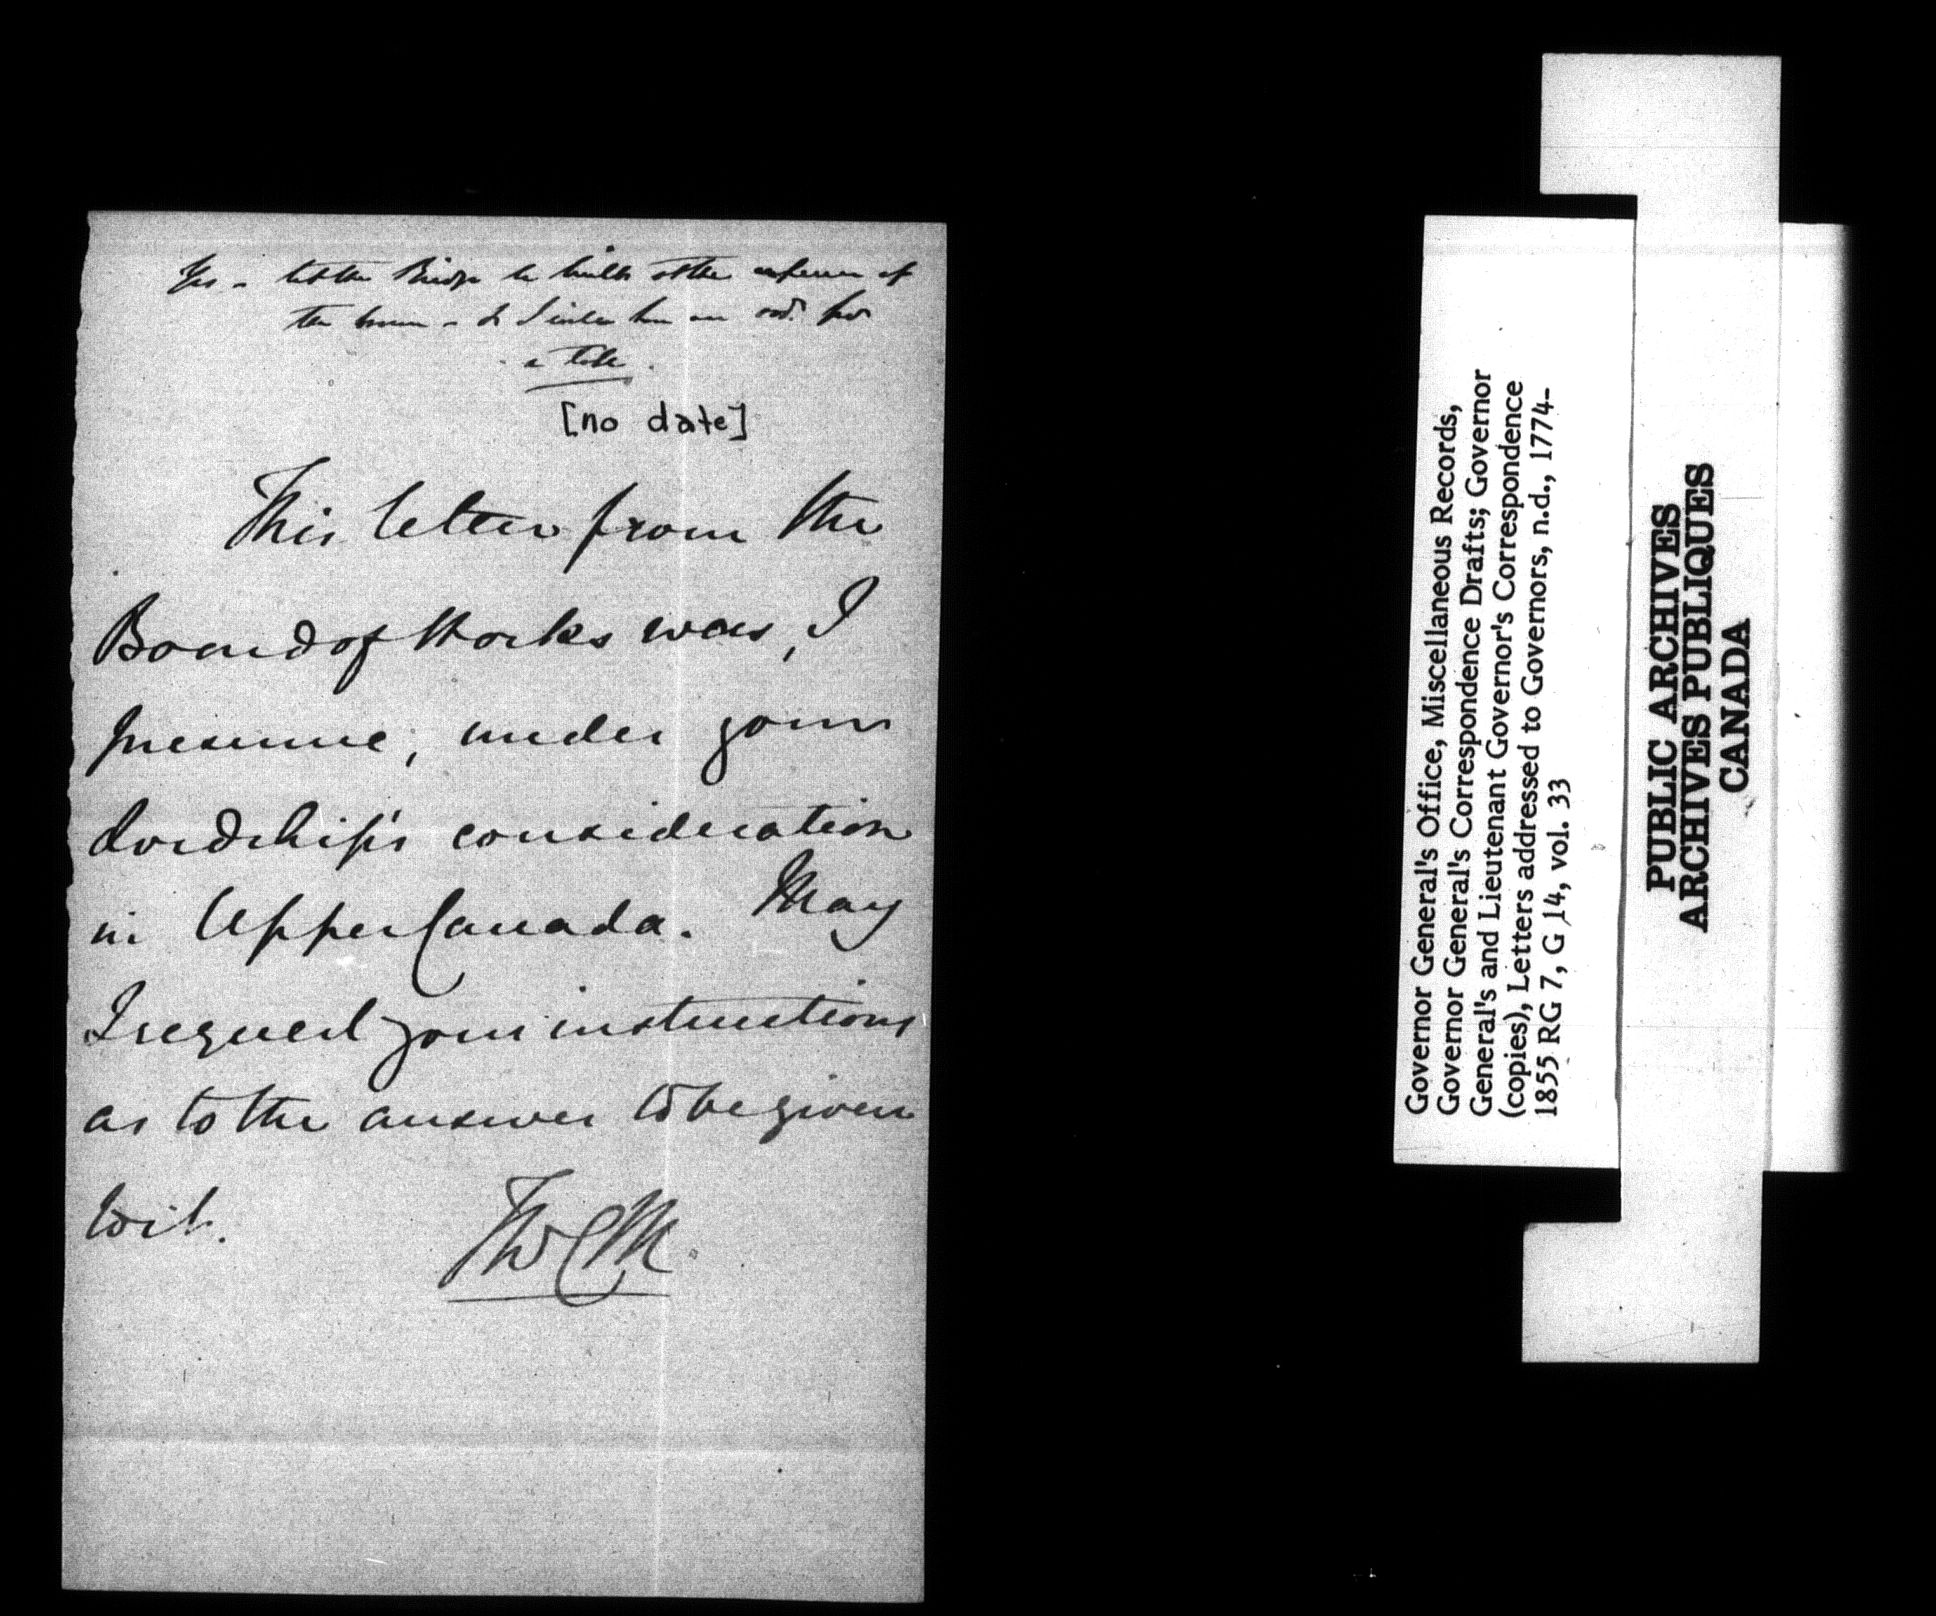 Yes - let the Bridge be built at the expense of
the
a toll.
[no date]
This letter from the
Board of Works was, I
presume, under your
Lordship's consideration
in Upper Canada. May
I request your instructions
as to the answer to be given
to it.
ThCM.
Governor General's Office, Miscellaneous Records,
Governor General's Correspondence Drafts; Governor
General's and Lieutenant Governor's Correspondence
(copies), Letters addressed to Governors, n.d., 1774-
1855 RG 7, G 14, vol. 33
PUBLIC ARCHIVES
ARCHIVES PUBLIQUES
CANADA